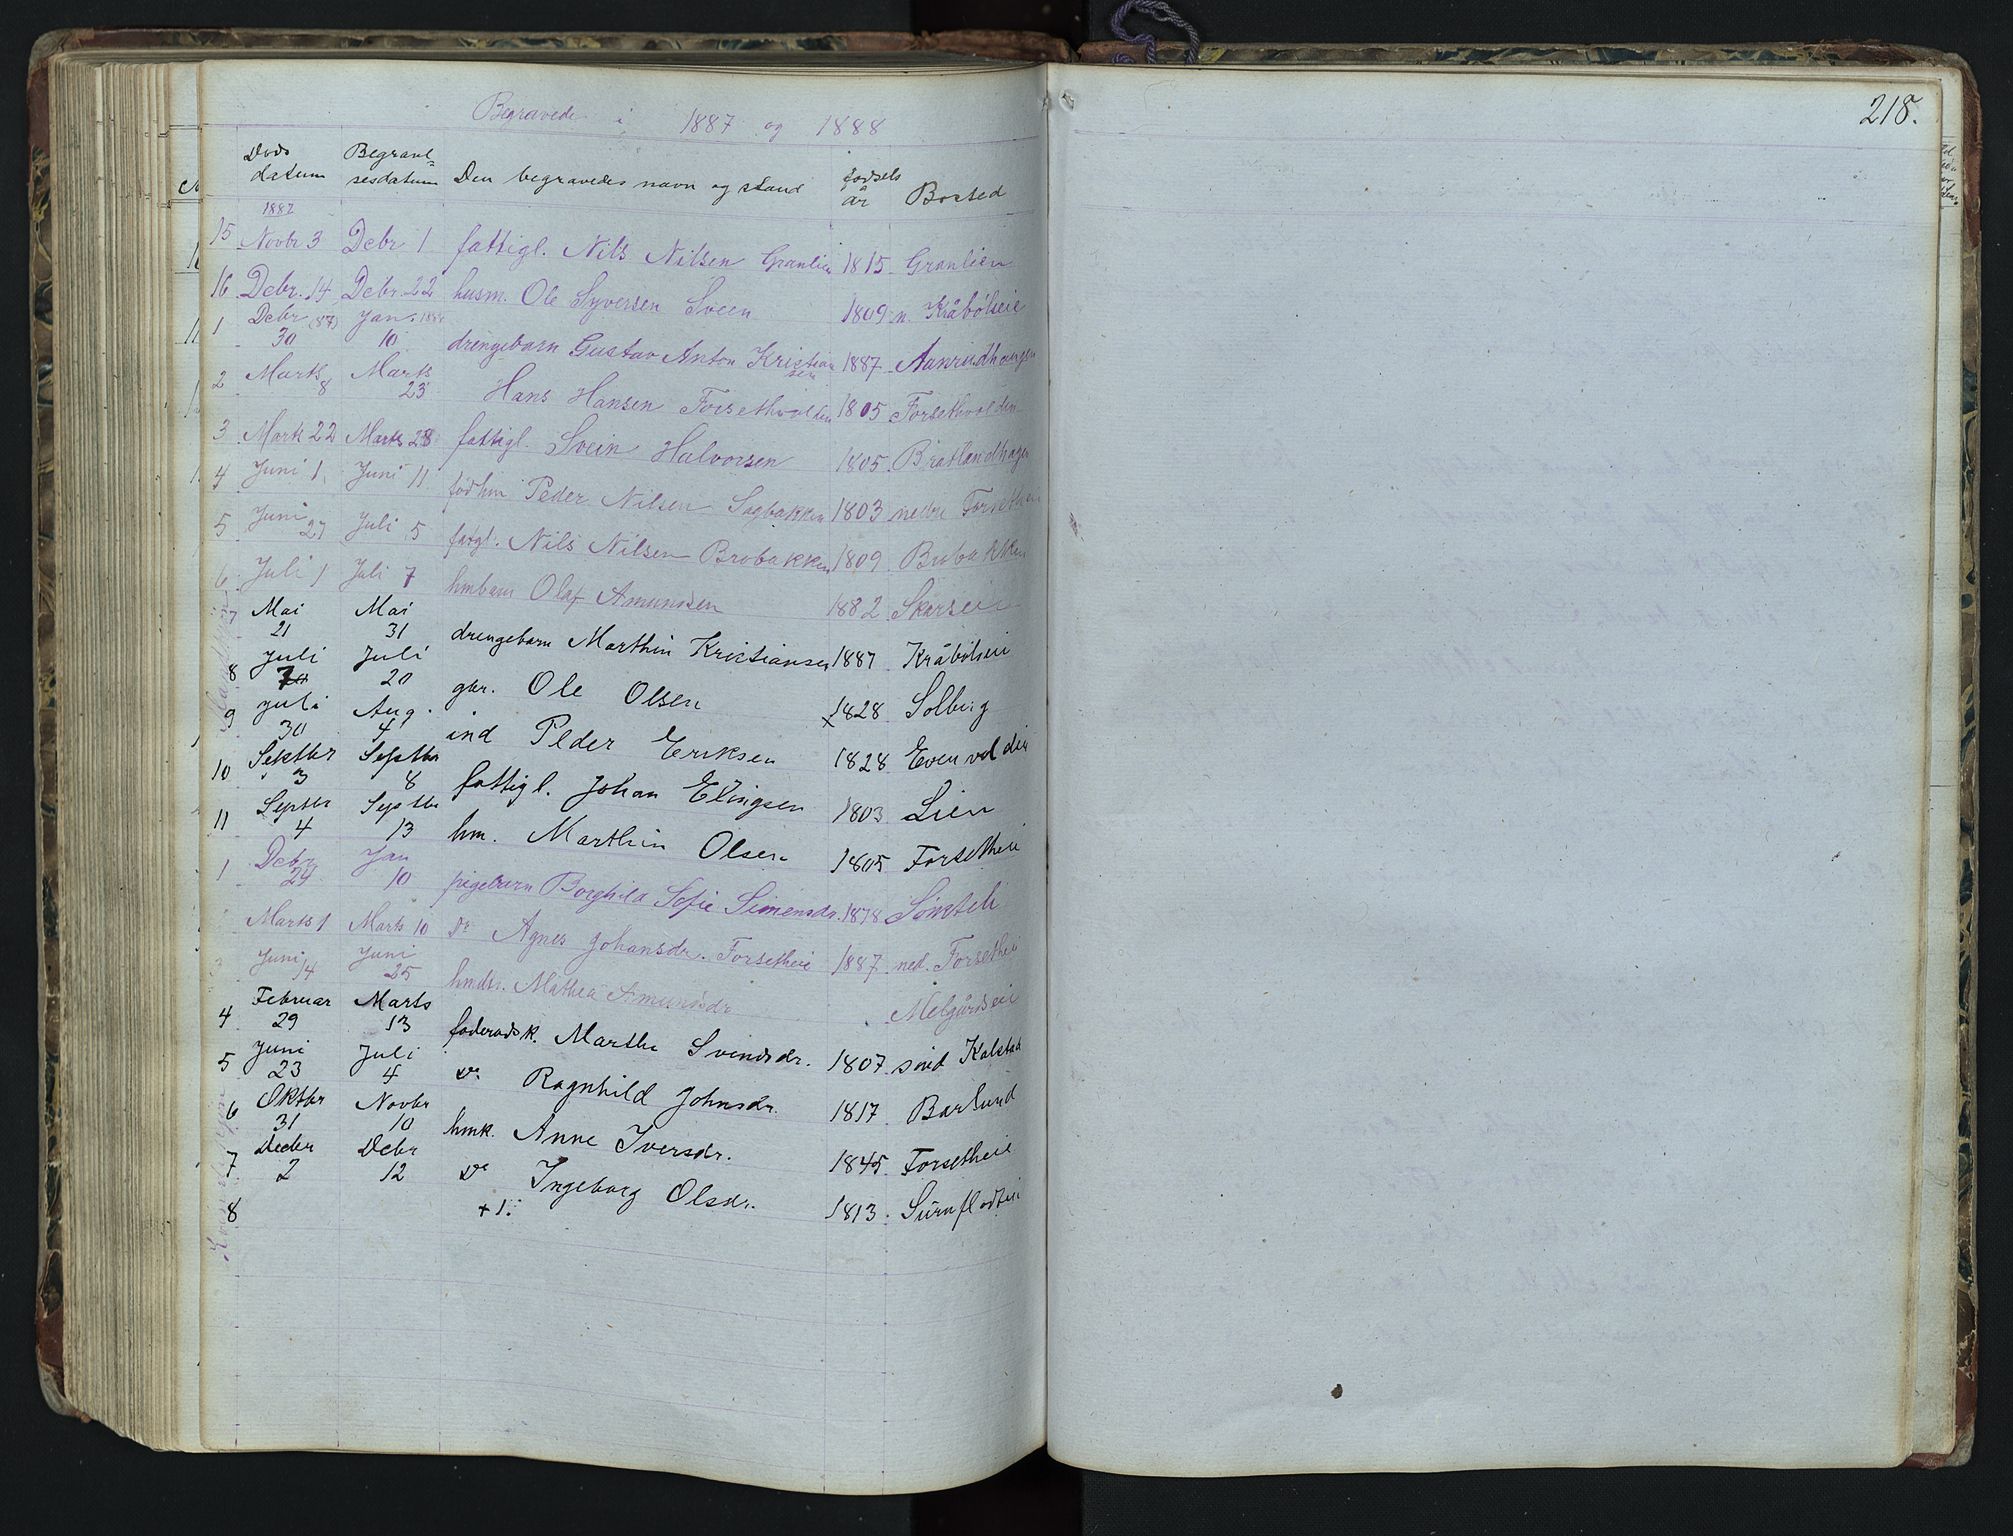 218.
Begravede i 1887 og 1888
Døds datum Begravelsesdatum Den begravedes navn og stand fødsels år Bosted
1887
15 Novbr 3 Debr 1 fattigl. Nils Nilsen Granlien 1815 Granlien
16 Debr. 14 Debr. 22 husm. Ole Syversen Sveen 1809 n. Kråbølseie
1 Debr (87) 30 Jan. 1888 10 drengebarn Gustav Anton Kristiansen 1887 Aanrudhaugen
2 Marts 8 Marts 23 Hans Hansen Forsethvolden 1805 Forsethvolden
3 Mark 22 Marts 28 fattigl. Svein Halvorsen 1805 Bratlandhagen
4 Juni 1 Juni 11 fødhm Peder Nilsen Sagbakken 1803 nedre Forsethei
5 Juni 27 Juli 5 fatgl. Nils Nilsen Brobakken 1809 Brobakken
6 Juli 1 Juli 7 hmbarn Olaf Amundsen 1882 Skarseie
7 Mai 21 Mai 31 drengebarn Marthin Kristiansen 1887 Kråbølseie
8 Juli Juli 20 gbr. Ole Olsen 1828 Solberg
9 Juli 30 Aug. 4 ind Peder Eriksen 1828 Evenvolden
10 Septbr 3 Septbr 8 fattigl. Johan Elingsen 1803 Lien
11 Septbr 4 Septbr 13 hm. Marthin Olsen 1805 Forsetheie
1 Debr 24 Jan 10 pigebarn Borghild Sofie Simensdr. 1878 Sønsteh
Marts 1 Marts 10 do Agnes Johansdr. Forsetheie 1887 ned. Forsetheie
Juni 14 Juni 25 hmdr. Mathea Amundsdr Melgårdseie
4 Februar 29 Marts 13 føderådsk. Marthe Svendsdr. 1807 Kalstad
5 Juni 23 Juli 4 do Ragnhild Johnsdr. 1817 Barlund
6 Oktbr 31 Novbr 10 hmk. Anne Iversdr. 1845 Forsetheie
7 Decbr 2 Debr 12 do Ingeborg Olsdr. 1813 Surnflodteie
8 + 1.